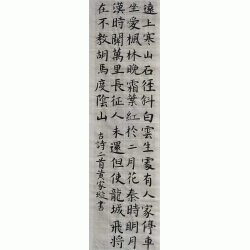 遠上寒山石徑斜白雲生處有人家停車
坐愛楓林晚霜葉紅於二月花秦時明月
漢時關萬里長征人未還但使龍城飛將
在不教胡馬度陰山
古詩二首黄家書